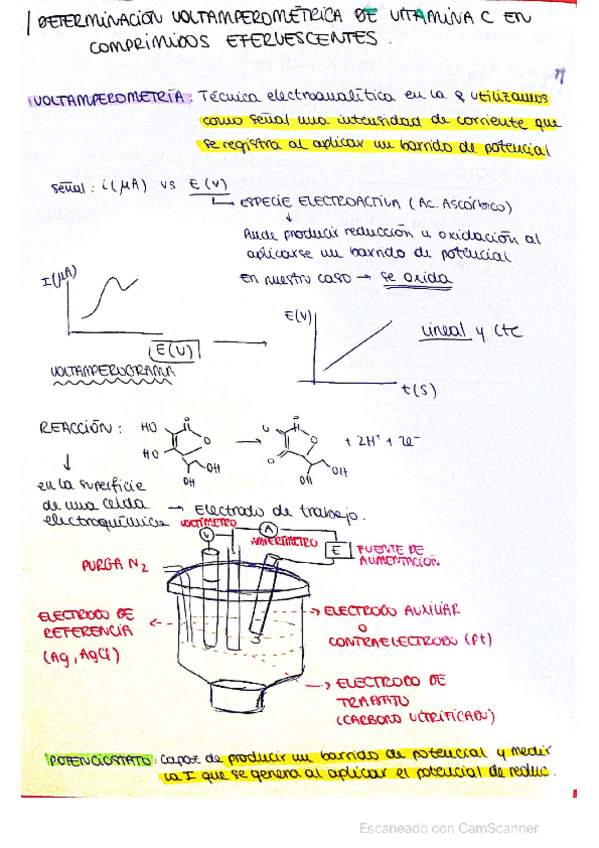 DETERMINACIÓN VOLTAMPEROMÉTRICA DE VITAMINA C EN
COMPRIMIDOS EFERVESCENTES.
VOLTAMPEROMETRÍA: Técnica electroanalítica en la q utilizamos
como señal una intensidad de corriente que
se registra al aplicar un barrido de potencial
señal: i(μA) vs E(V)
ESPECIE ELECTROACTIVA (Ac. Ascórbico)
Puede producir reducción u oxidación al
aplicarse un barrido de potencial
En nuestro caso → se oxida
I(μA)
E(V)
VOLTAMPEROGRAMA
E(V)
t(s)
Lineal y cte
REACCIÓN:
HO
HO
O
O
OH
OH
→
O
O
OH
OH
+ 2H⁺ + 2e⁻
en la superficie
de una celda
electroquímica
→ Electrodo de trabajo.
VOLTÍMETRO
V
A
AMPERÍMETRO
E
FUENTE DE
ALIMENTACIÓN
PURGA N₂
ELECTRODO DE
REFERENCIA
(Ag, AgCl)
ELECTRODO AUXILIAR
O
CONTRAELECTRODO (Pt)
ELECTRODO DE
TRABAJO
(CARBONO VITRIFICADO)
POTENCIOSTATO: Capaz de producir un barrido de potencial y medir
la I que se genera al aplicar el potencial de reduc.
Escaneado con CamScanner